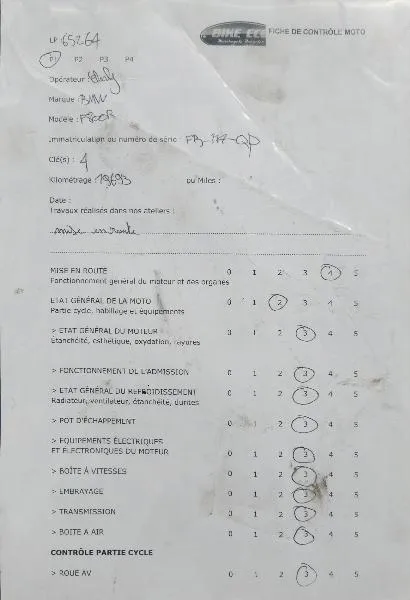 BIKE ECO FICHE DE CONTRÔLE MOTO
LP 65264
P1 P2 P3 P4
Opérateur :
Marque : BMW
Modèle : F800R
Immatriculation ou numéro de série :
Clé(s) : 4
Kilométrage : 19693 ou Miles :
Date :
Travaux réalisés dans nos ateliers :
mise en route
MISE EN ROUTE 0 1 2 3 4 5
Fonctionnement général du moteur et des organes
ETAT GÉNÉRAL DE LA MOTO 0 1 2 3 4 5
Partie cycle, habillage et équipements
> ETAT GÉNÉRAL DU MOTEUR 0 1 2 3 4 5
Etanchéité, esthétique, oxydation, rayures
> FONCTIONNEMENT DE L'ADMISSION 0 1 2 3 4 5
> ETAT GÉNÉRAL DU REFROIDISSEMENT 0 1 2 3 4 5
Radiateur, ventilateur, étanchéité, durites
> POT D'ÉCHAPPEMENT 0 1 2 3 4 5
> EQUIPEMENTS ÉLECTRIQUES
ET ÉLECTRONIQUES DU MOTEUR 0 1 2 3 4 5
> BOÎTE À VITESSES 0 1 2 3 4 5
> EMBRAYAGE 0 1 2 3 4 5
> TRANSMISSION 0 1 2 3 4 5
> BOITE A AIR 0 1 2 3 4 5
CONTRÔLE PARTIE CYCLE
> ROUE AV 0 1 2 3 4 5